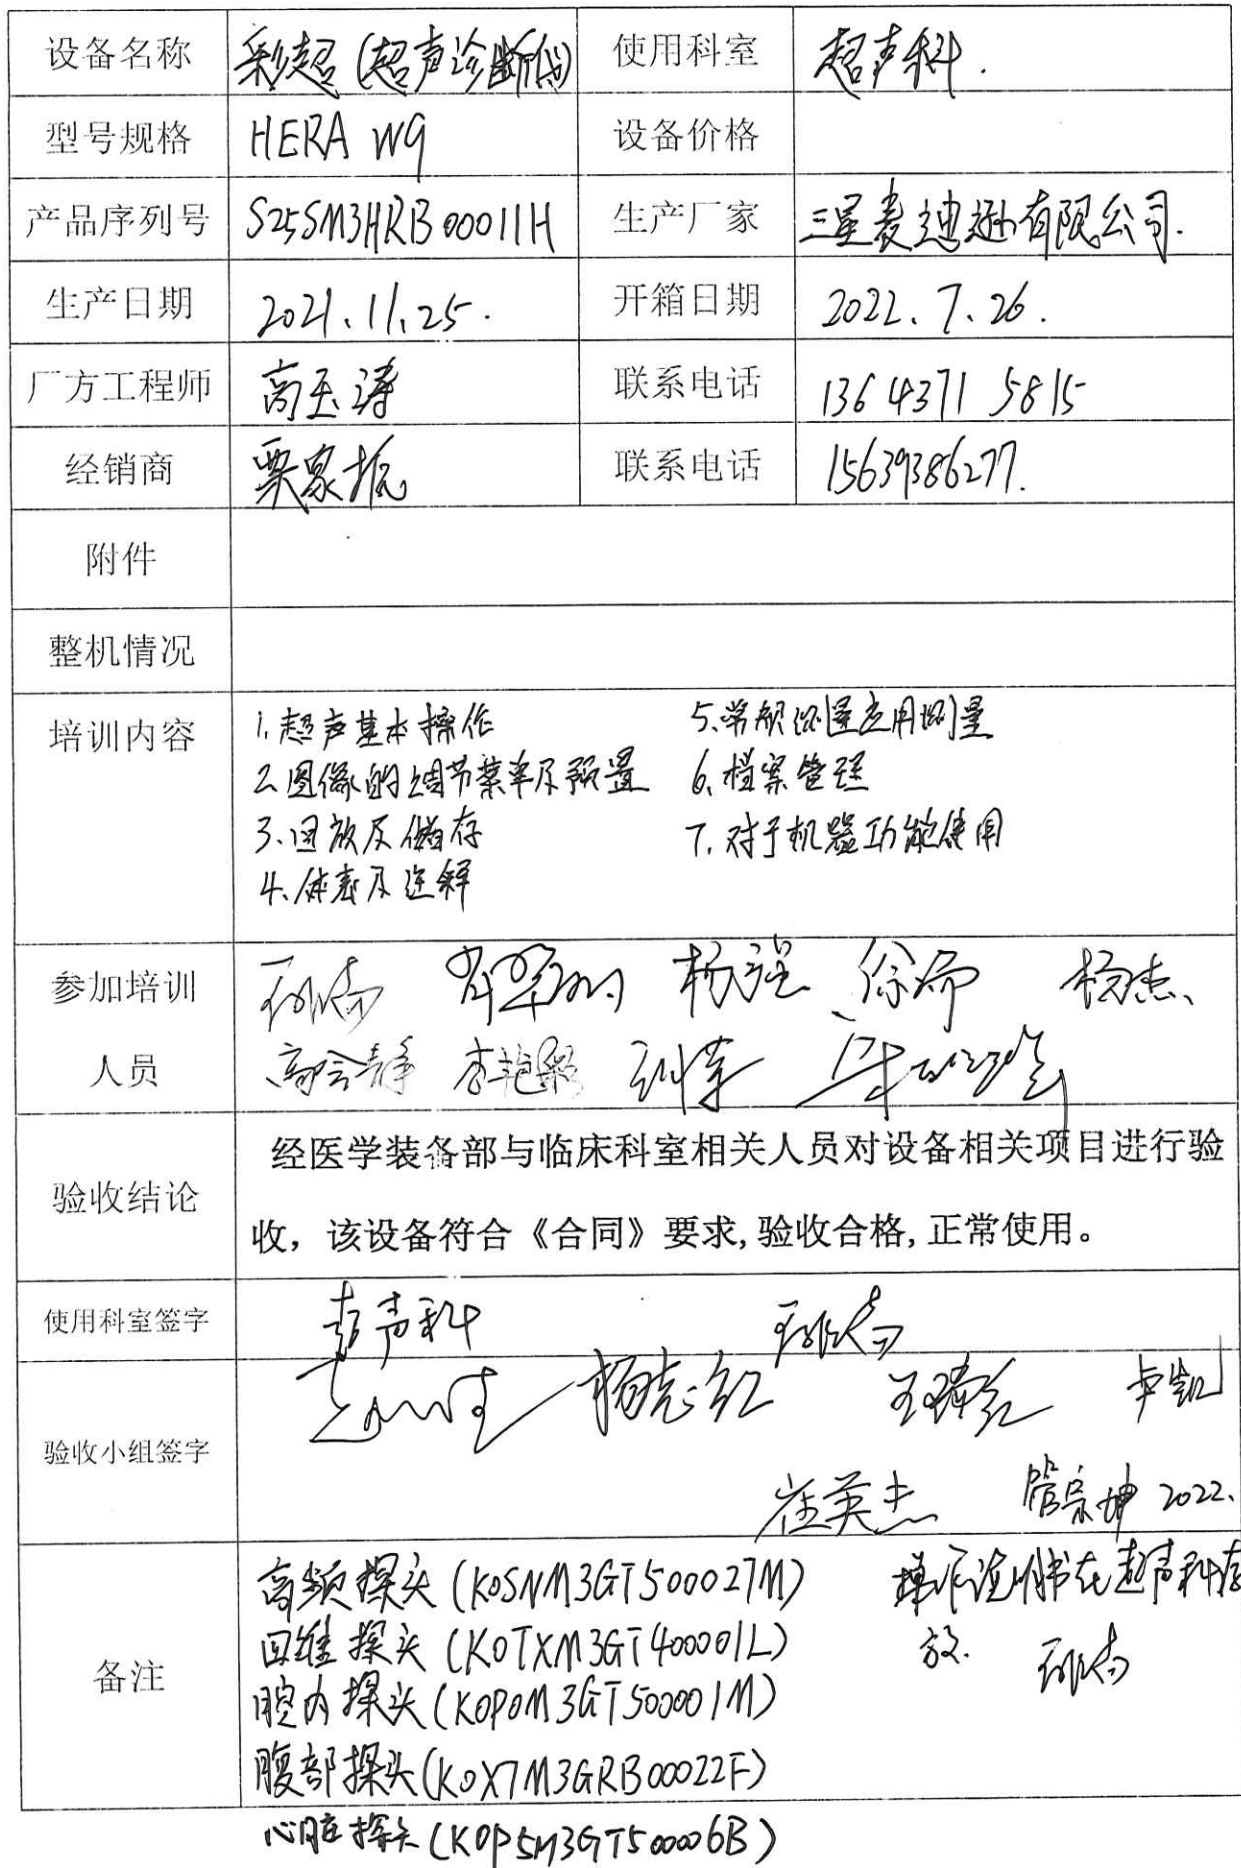 设备名称 彩超(超声诊断仪) 使用科室 超声科.
型号规格 HERA W9 设备价格
产品序列号 S25SM3HRB00011H 生产厂家 三星麦迪逊有限公司.
生产日期 2021.11.25. 开箱日期 2022.7.26.
厂方工程师 高玉涛 联系电话 136 4371 5815
经销商 栗家振 联系电话 15639386277.
附件
整机情况
培训内容 1.超声基本操作 5.常规测量应用测量
2.图像的调节菜单及预置 6.档案管理
3.回放及储存 7.对于机器功能使用
4.体表及注释
参加培训 杨强 徐 杨杰、
人员 高会静 李艳
验收结论 经医学装备部与临床科室相关人员对设备相关项目进行验
收，该设备符合《合同》要求,验收合格,正常使用。
使用科室签字 超声科
验收小组签字 杨志红 卢凯
崔英杰 管宗坤 2022.
备注 高频探头(K0SNM3GT500027M) 操作说明书在超声科存
四维探头(K0TXM3GT400001L) 放.
腔内探头(K0P0M3GT500001M)
腹部探头(K0X7M3GRB00022F)
心脏探头(K0P5M3GT500006B)